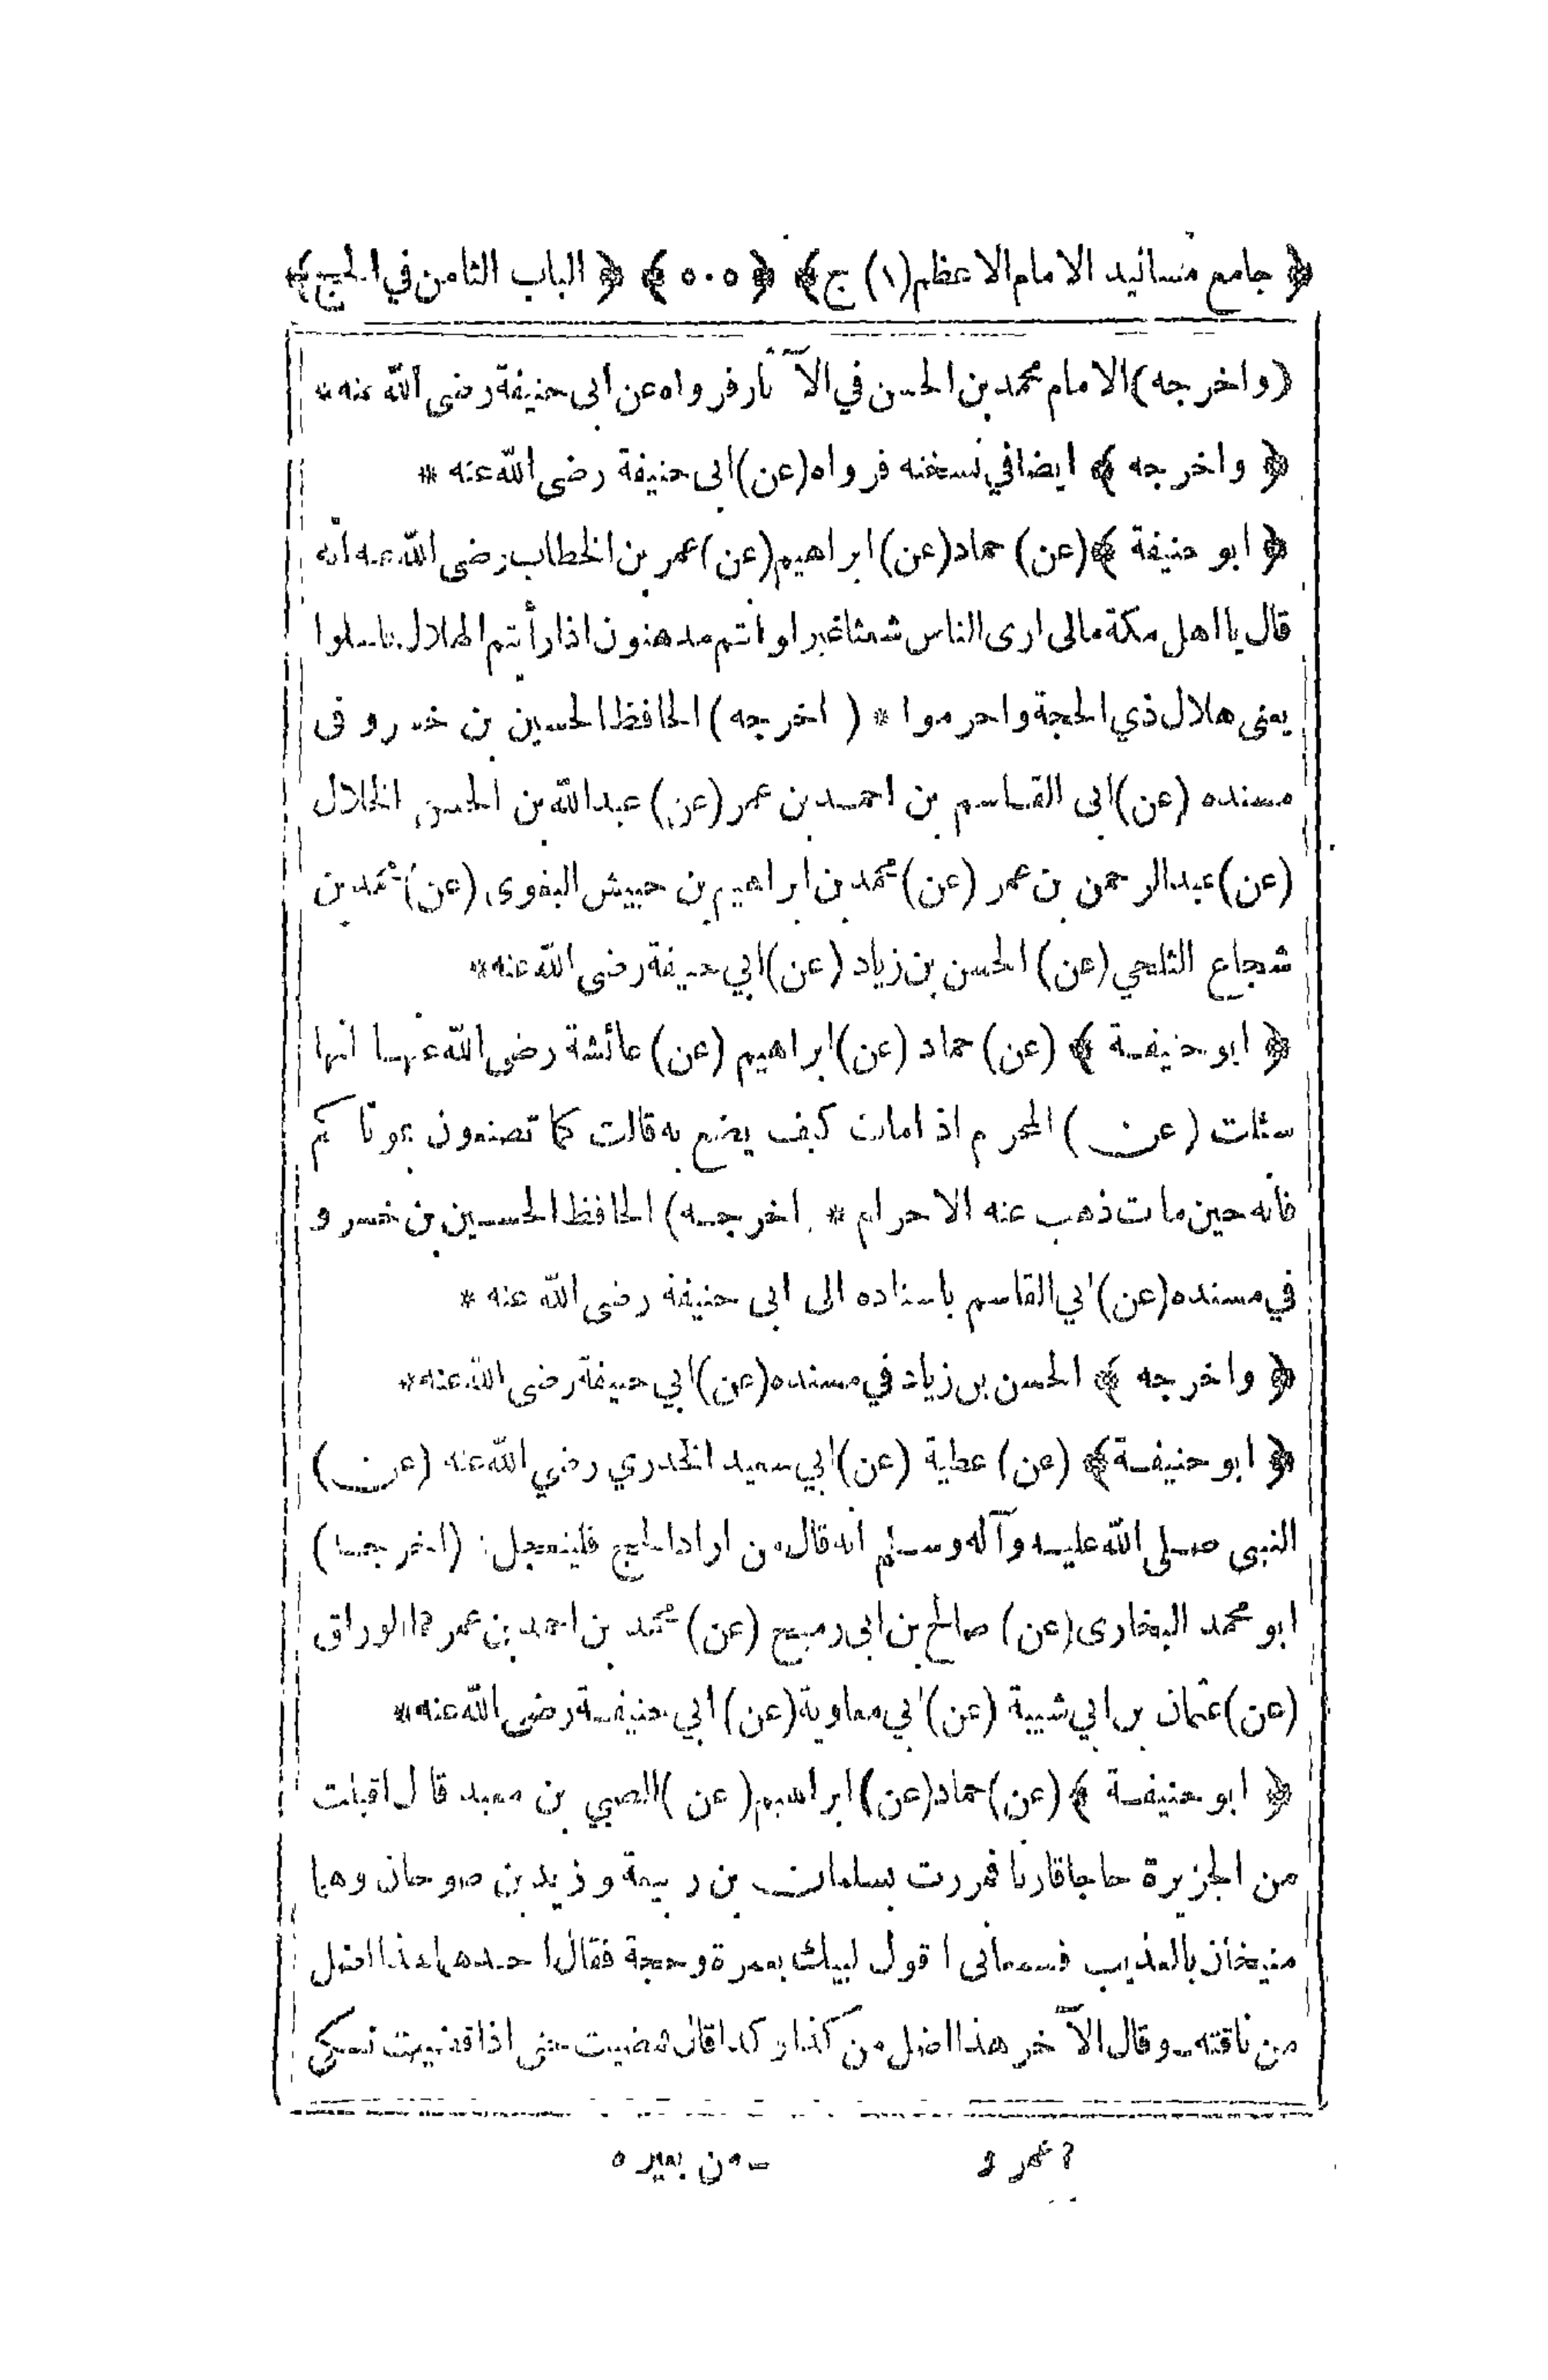 ﴿ جامع مسانيد الامام الاعظم (١) ج﴾ ﴿ ٥٠٥ ﴾ ﴿ الباب الثامن في الحج﴾
(واخرجه) الامام محمد بن الحسن في الآثار فرواه عن ابى حنيفة رضى الله عنه *
﴿ واخرجه ﴾ ايضا في نسخته فرواه (عن) ابى حنيفة رضى الله عنه *
﴿ ابو حنيفة ﴾ (عن) حماد (عن) ابراهيم (عن) عمر بن الخطاب رضى الله عنه انه
قال يا اهل مكة مالى ارى الناس شعثا غبرا وانتم مدهنون اذا رأيتم الهلال
يعنى هلال ذي الحجة واحرموا * ( اخرجه ) الحافظ الحسين بن خسرو فى
مسنده (عن) ابى القاسم بن احمد بن عمر (عن) عبدالله بن الحسن الخلال
(عن) عبدالرحمن بن عمر (عن) محمد بن ابراهيم بن حبيش البغوى (عن) محمد بن
شجاع الثلجي (عن) الحسن بن زياد (عن) ابي حنيفة رضى الله عنه *
﴿ ابو حنيفة ﴾ (عن) حماد (عن) ابراهيم (عن) عائشة رضى الله عنها انها
سئلت (عن) المحرم اذا مات كيف يصنع به قالت كما تصنعون بموتاكم
فانه حين مات ذهب عنه الاحرام * اخرجه) الحافظ الحسين بن خسرو
في مسنده (عن) ابي القاسم باسناده الى ابى حنيفة رضى الله عنه *
﴿ واخرجه ﴾ الحسن بن زياد في مسنده (عن) ابي حنيفة رضى الله عنه *
﴿ ابو حنيفة﴾ (عن) عطية (عن) ابي سعيد الخدري رضي الله عنه (عن)
النبى صلى الله عليه وآله وسلم انه قال من اراد الحج فليتعجل: (اخرجه)
ابو محمد البخارى (عن) صالح بن ابى رميح (عن) محمد بن احمد بن عمر ٢ الوراق
(عن) عثمان بن ابي شيبة (عن) ابي معاوية (عن) ابي حنيفة رضى الله عنه *
﴿ ابو حنيفة ﴾ (عن) حماد (عن) ابراهيم (عن) الصبي بن معبد قال اقبلت
من الجزيرة حاجا قارنا فمررت بسلمان بن ربيعة وزيد بن صوحان وهما
منيخان بالعذيب فسمعانى اقول لبيك بعمرة وحجة فقال احدهما هذا اضل
من ناقته ـ وقال الآخر هذا اضل من كذا وكذا قال فمضيت حتى اذا قضيت نسكى
٢ عمرو ـ من بعيره